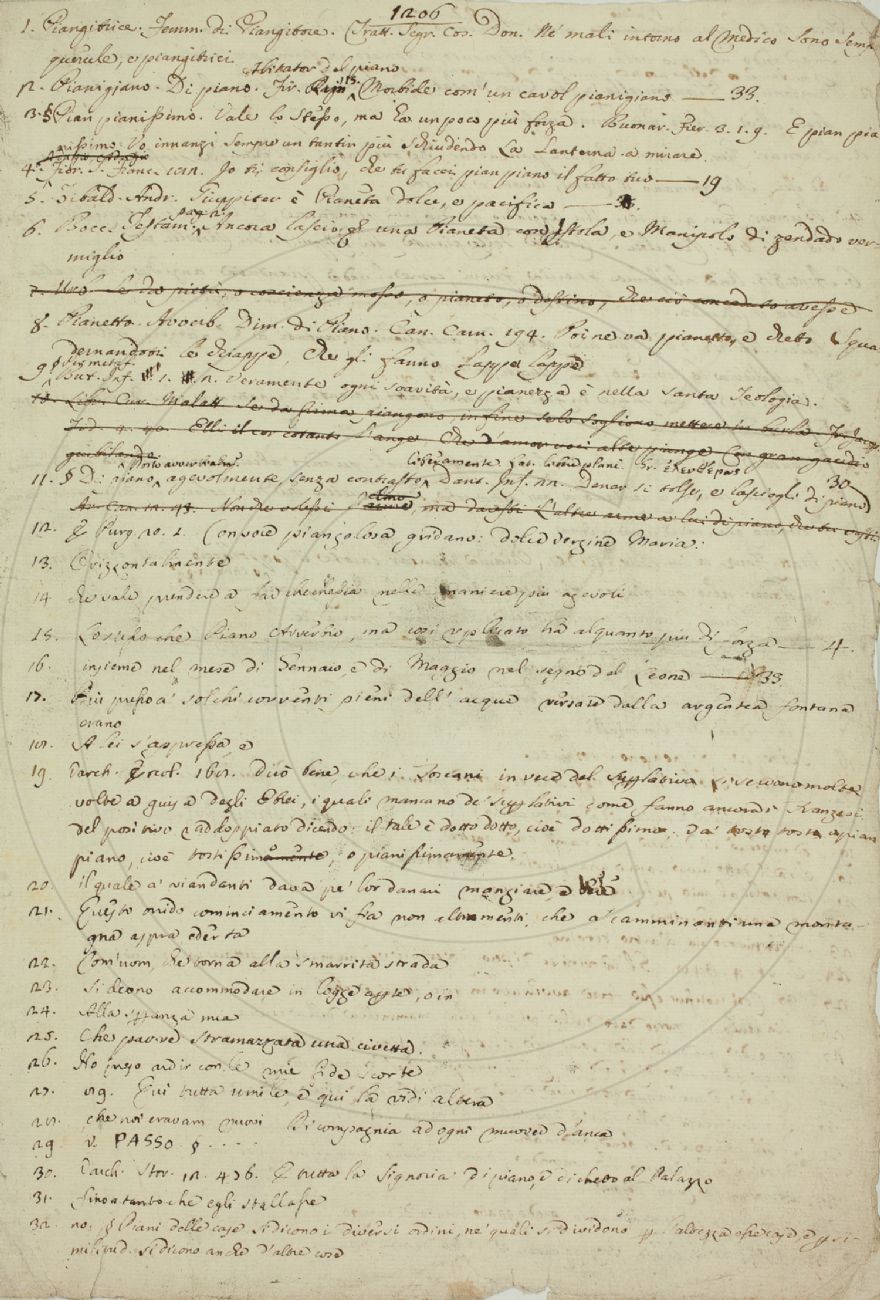 1206
1. Piangitrice. Femm. di Piangitore. (Tratt. Segr. Cos. Don. Ne' mali intorno al Medico sono semp
querule, e piangitrici
Abitator del piano
2. Pianigiano. Di piano. Fir. Morbide com' un cavol pianigiano — 33.
3. § Pian pianissimo. Vale lo stesso, ma ha un poco più forza. Buonar. Fier. 3. 1. 9. E pian pia
nissimo Vo innanzi sempre un tantin più schiudendo La Lanterna a mirare
4. Fior. S. Franc. Io ti consiglio, che tu facci pian piano il fatto tuo — 19
5. Tibald. Andr. Giuppiter è Pianeta dolce, e pacifica —
6. Bocc. Testam. Ancora lascio una Pianeta con istola, e Manipolo di zendado ver-
miglio
7. o pietà, o coscienza o pianeto, o destino, che ciò conceduto avesse
8. Pianetto. Avverb. Dim. di Piano. Can. Carn. 194. Poi ne va pianetto, e chetto Squa-
dernandovi le chiappe, Che gli fanno lappe lappe
9. § But. Inf. 1. Veramente ogni soavità, e pianezza è nella santa Teologia.
10. Libr. Cur. Malatt. Se da prima piangono, in fine solo sogliono mettere in burla
Elli il cor cotanto l'ange Che d'amor voci alte piange Con gran gaudio
11. § Di piano, Posto avverbialm. agevolmente, senza contrasto, liberamente Dant. Inf. 22. Denar si tolse, e lasciogli di piano 30
ma l'altre arme a lui di piano
12. E Purg. 20. 1. Con voce piangolosa, gridano: dolce vergine Maria.
13. Orizzontalmente
14. che vale prendere a far checchesia nelle maniere più agevoli
15. Lo stesso che Piano Avverbio, ma così replicato ha alquanto più di forza — 4.
16. insieme nel mese di Gennaio, e di Maggio nel segno del Leone — 33.
17. Più presso a' solchi correnti pieni dell' acque versate dalla argentea fontana
erano
18. A lei s'appressa, e
19. Varch. Ercol. 181. dico bene che i Toscani in vece del superlativo si servono molte
volte a guisa degli Ebrei, i quali mancano de' superlativi come fanno ancora i Franzesi
del positivo raddoppiato dicendo: il tale è dotto dotto, cioè dottissimo, va' tosto tosto, o pian
piano, cioè tostissimamente, o pianissimamente.
20. il quale a' viandanti dava pe' lor danari mangiare, e bere
21. Questo orrido cominciamento vi fia non altramenti, che a' camminanti una monta-
gna aspra ed erta
22. Com' uom, che torna alla smarrita strada
23. si deono accommodare in logge aperte, o in
24. Alla speranza mia
25. Che parve stramazzata una civetta.
26. Ho preso ardir con le mie fide scorte
27. Qui tutta umile, e qui la vidi altera
28. che noi eravam mossi Di compagnia ad ogni muover d'anca
29. v. PASSO §. . . .
30. Varch. Stor. 12. 476. E tutta la Signoria di piano, e di cheto al Palazzo
31. fino a tanto che egli stallasse
32. no: § Piani delle case si dicono i diversi ordini, ne' quali si dividono per l'altezza esse case, e per si-
militud. si dicono anche d'altre cose